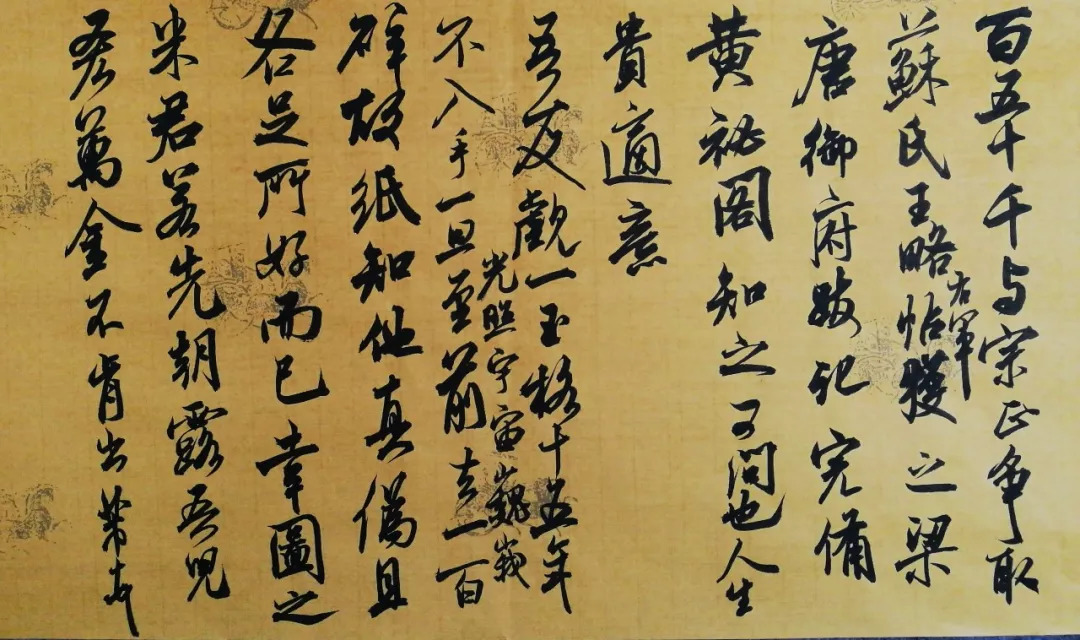 百五十千与宗正争取
蘇氏王略帖獲之梁
右軍
唐御府跋記完備
黄祕閣知之可問也人生
貴適意
吾友覷一玉格十五年
光照宇宙巍峩
不入手一旦至前去一百
碎故紙知他真偽且
各足所好而已幸圖之
米君若先朝露吾兒
吝萬金不肯出芾頓首